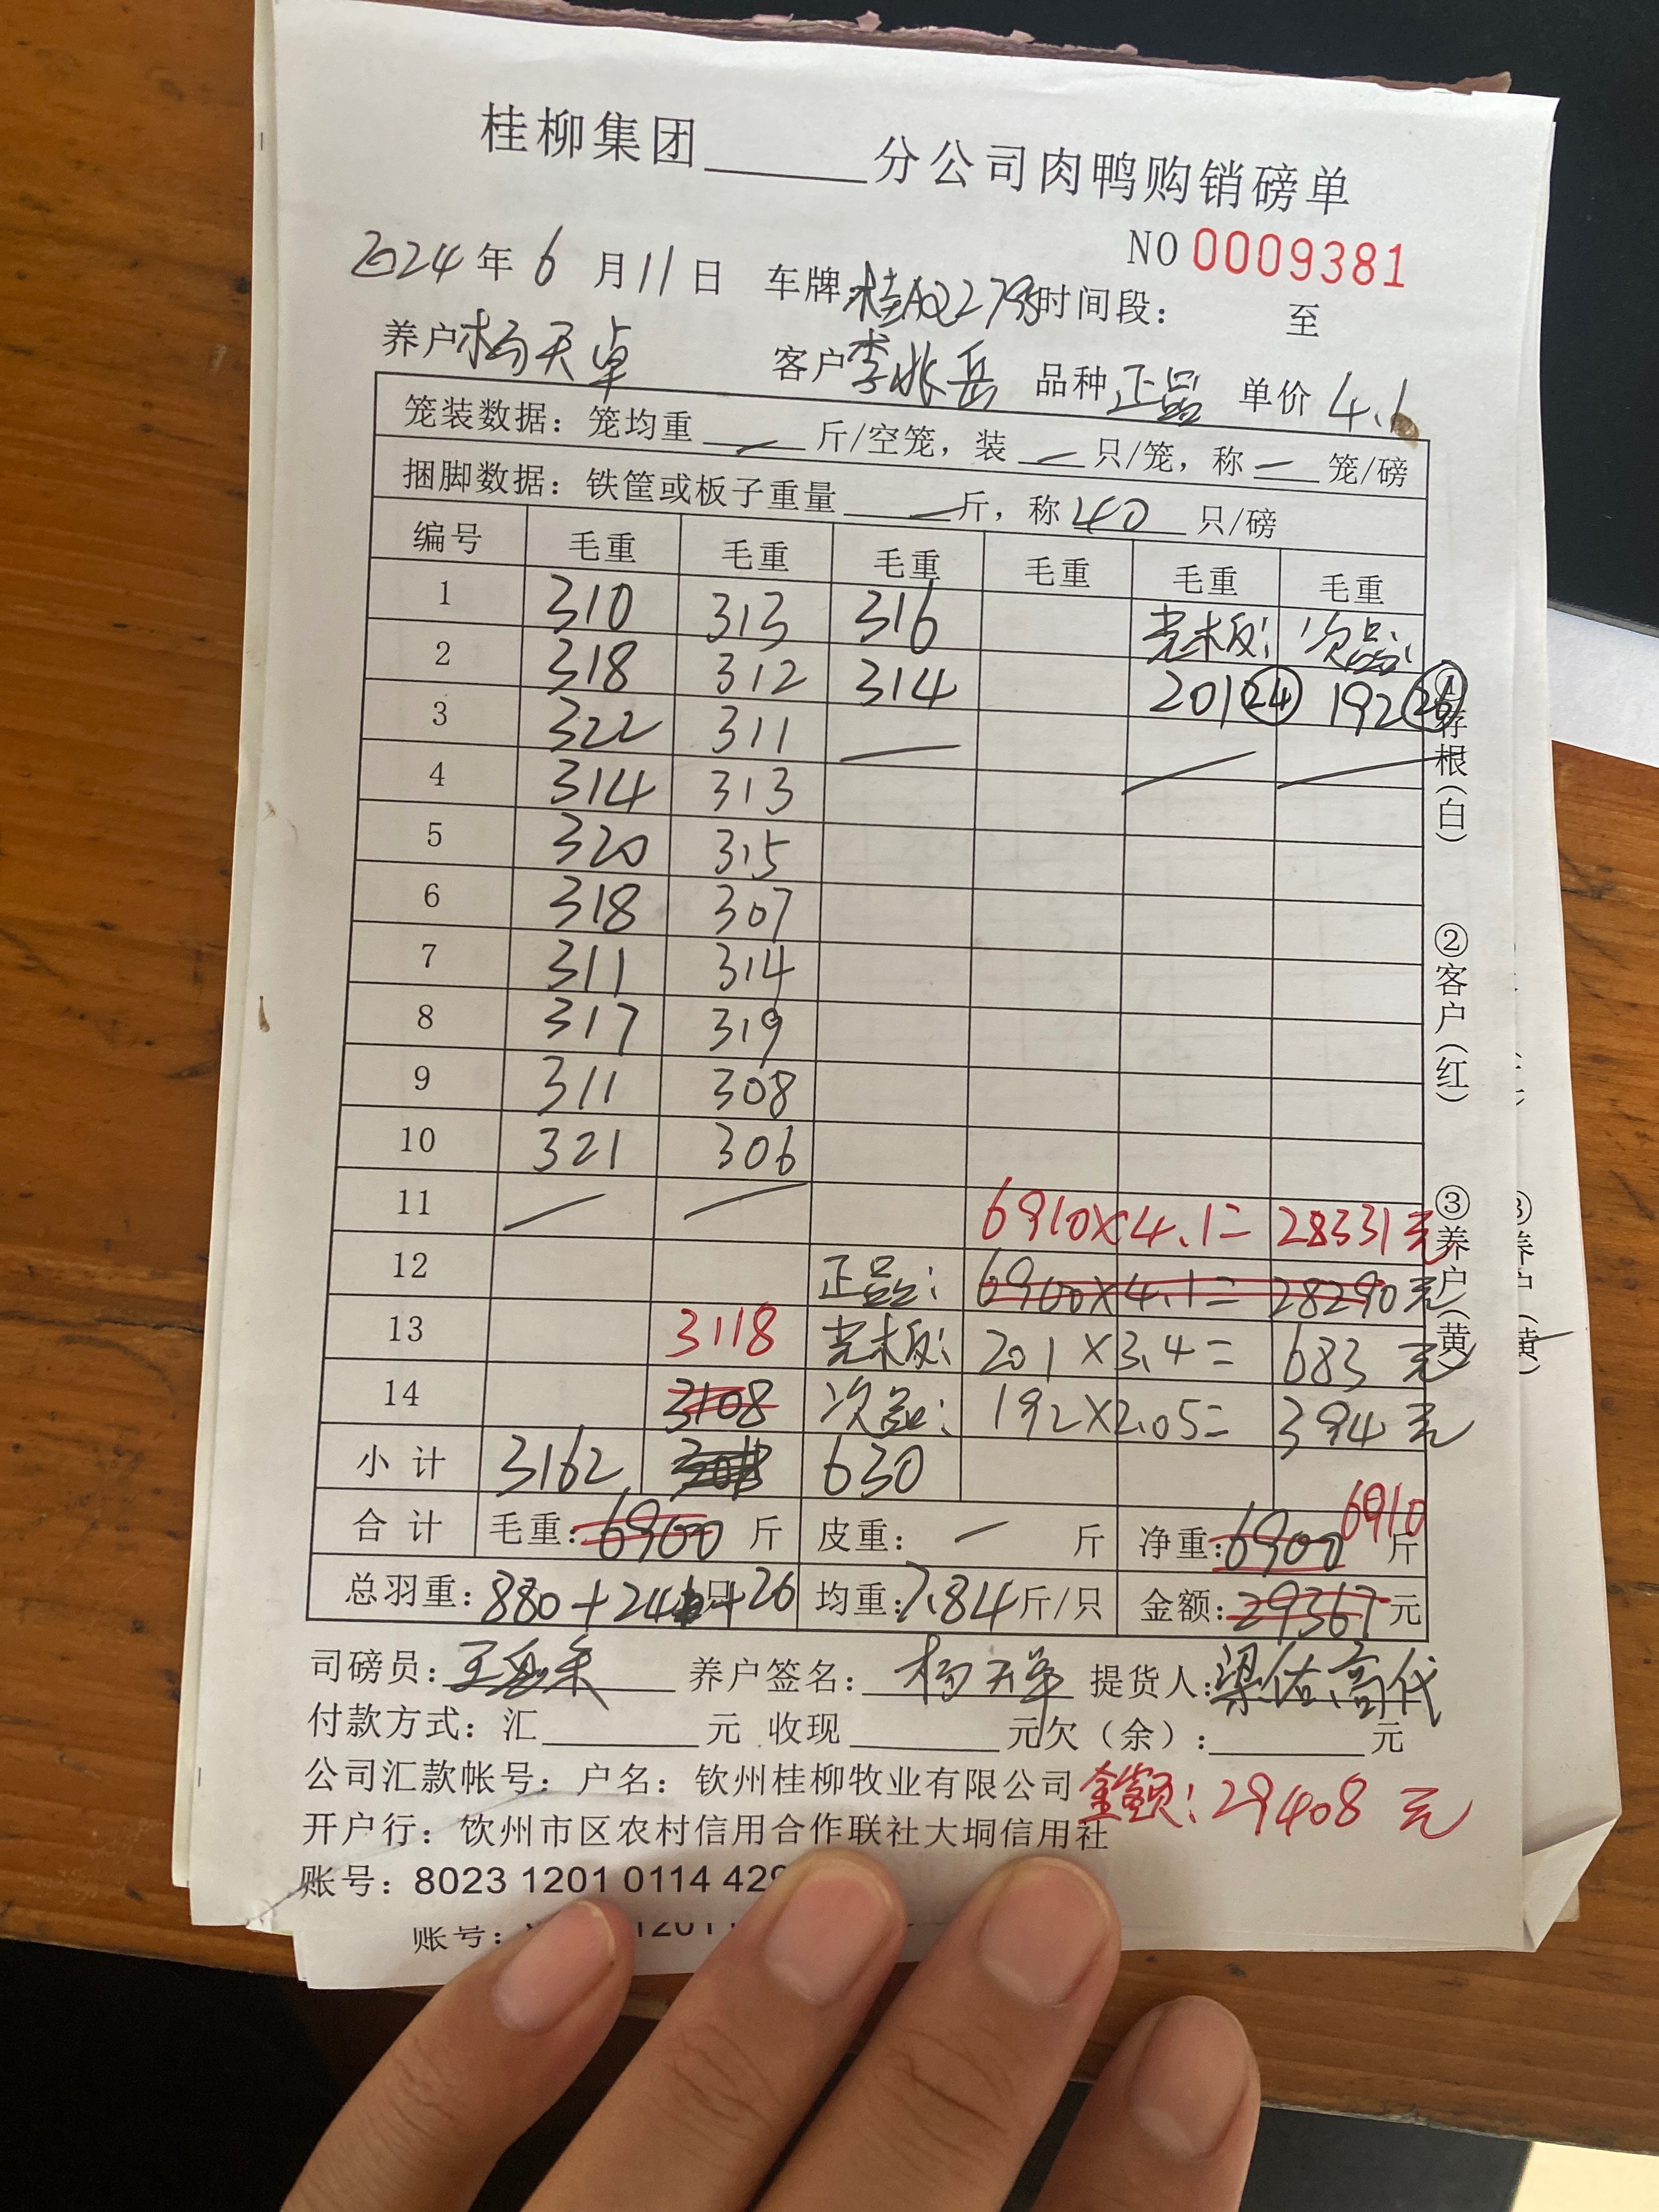 桂柳集团______分公司肉鸭购销磅单
NO 0009381
2024年6月11日 车牌:桂A 时间段： 至
养户 杨天卓 客户 李兆岳 品种 正品 单价 4.1
笼装数据：笼均重 — 斤/空笼，装 — 只/笼，称 — 笼/磅
捆脚数据：铁筐或板子重量 — 斤，称 40 只/磅
编号 毛重 毛重 毛重 毛重 毛重 毛重
1 310 313 316 光木板: 次品:
2 318 312 314 201 24 192 26
3 322 311 — — —
4 314 313
5 320 315
6 318 307
7 311 314
8 317 319
9 311 308
10 321 306
11 — — 6910×4.1= 28331元
12 正品: 6900×4.1= 28290元
13 3118 光木板: 201×3.4= 683元
14 3108 次品: 192×2.05= 394元
小计 3162 630
6910
合计 毛重:6900 斤 皮重: — 斤 净重:6900 斤
总羽重:880+24只+26 均重:7.84斤/只 金额:29367元
司磅员: 养户签名: 提货人:
付款方式：汇______元 收现______元欠（余）:______元
公司汇款帐号：户名：钦州桂柳牧业有限公司
金额:29408元
开户行：钦州市区农村信用合作联社大垌信用社
账号：8023 1201 0114 429
账号:
①存根（白）
②客户（红）
③养户（黄）